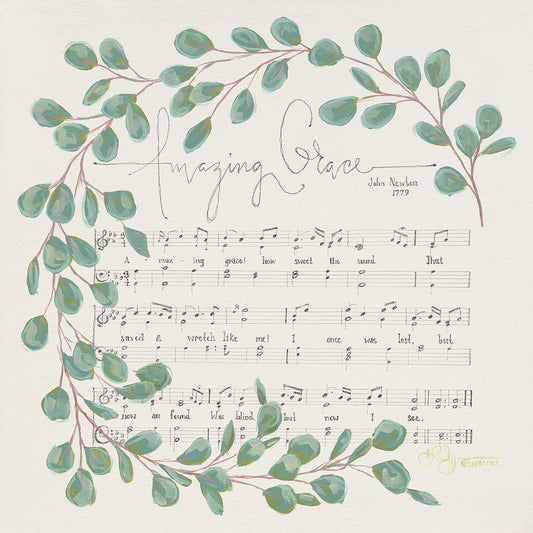 Amazing Grace
John Newton
1779
A maz - ing grace! how sweet the sound That
saved a wretch like me! I once was lost, but
now am found Was blind, but now I see.